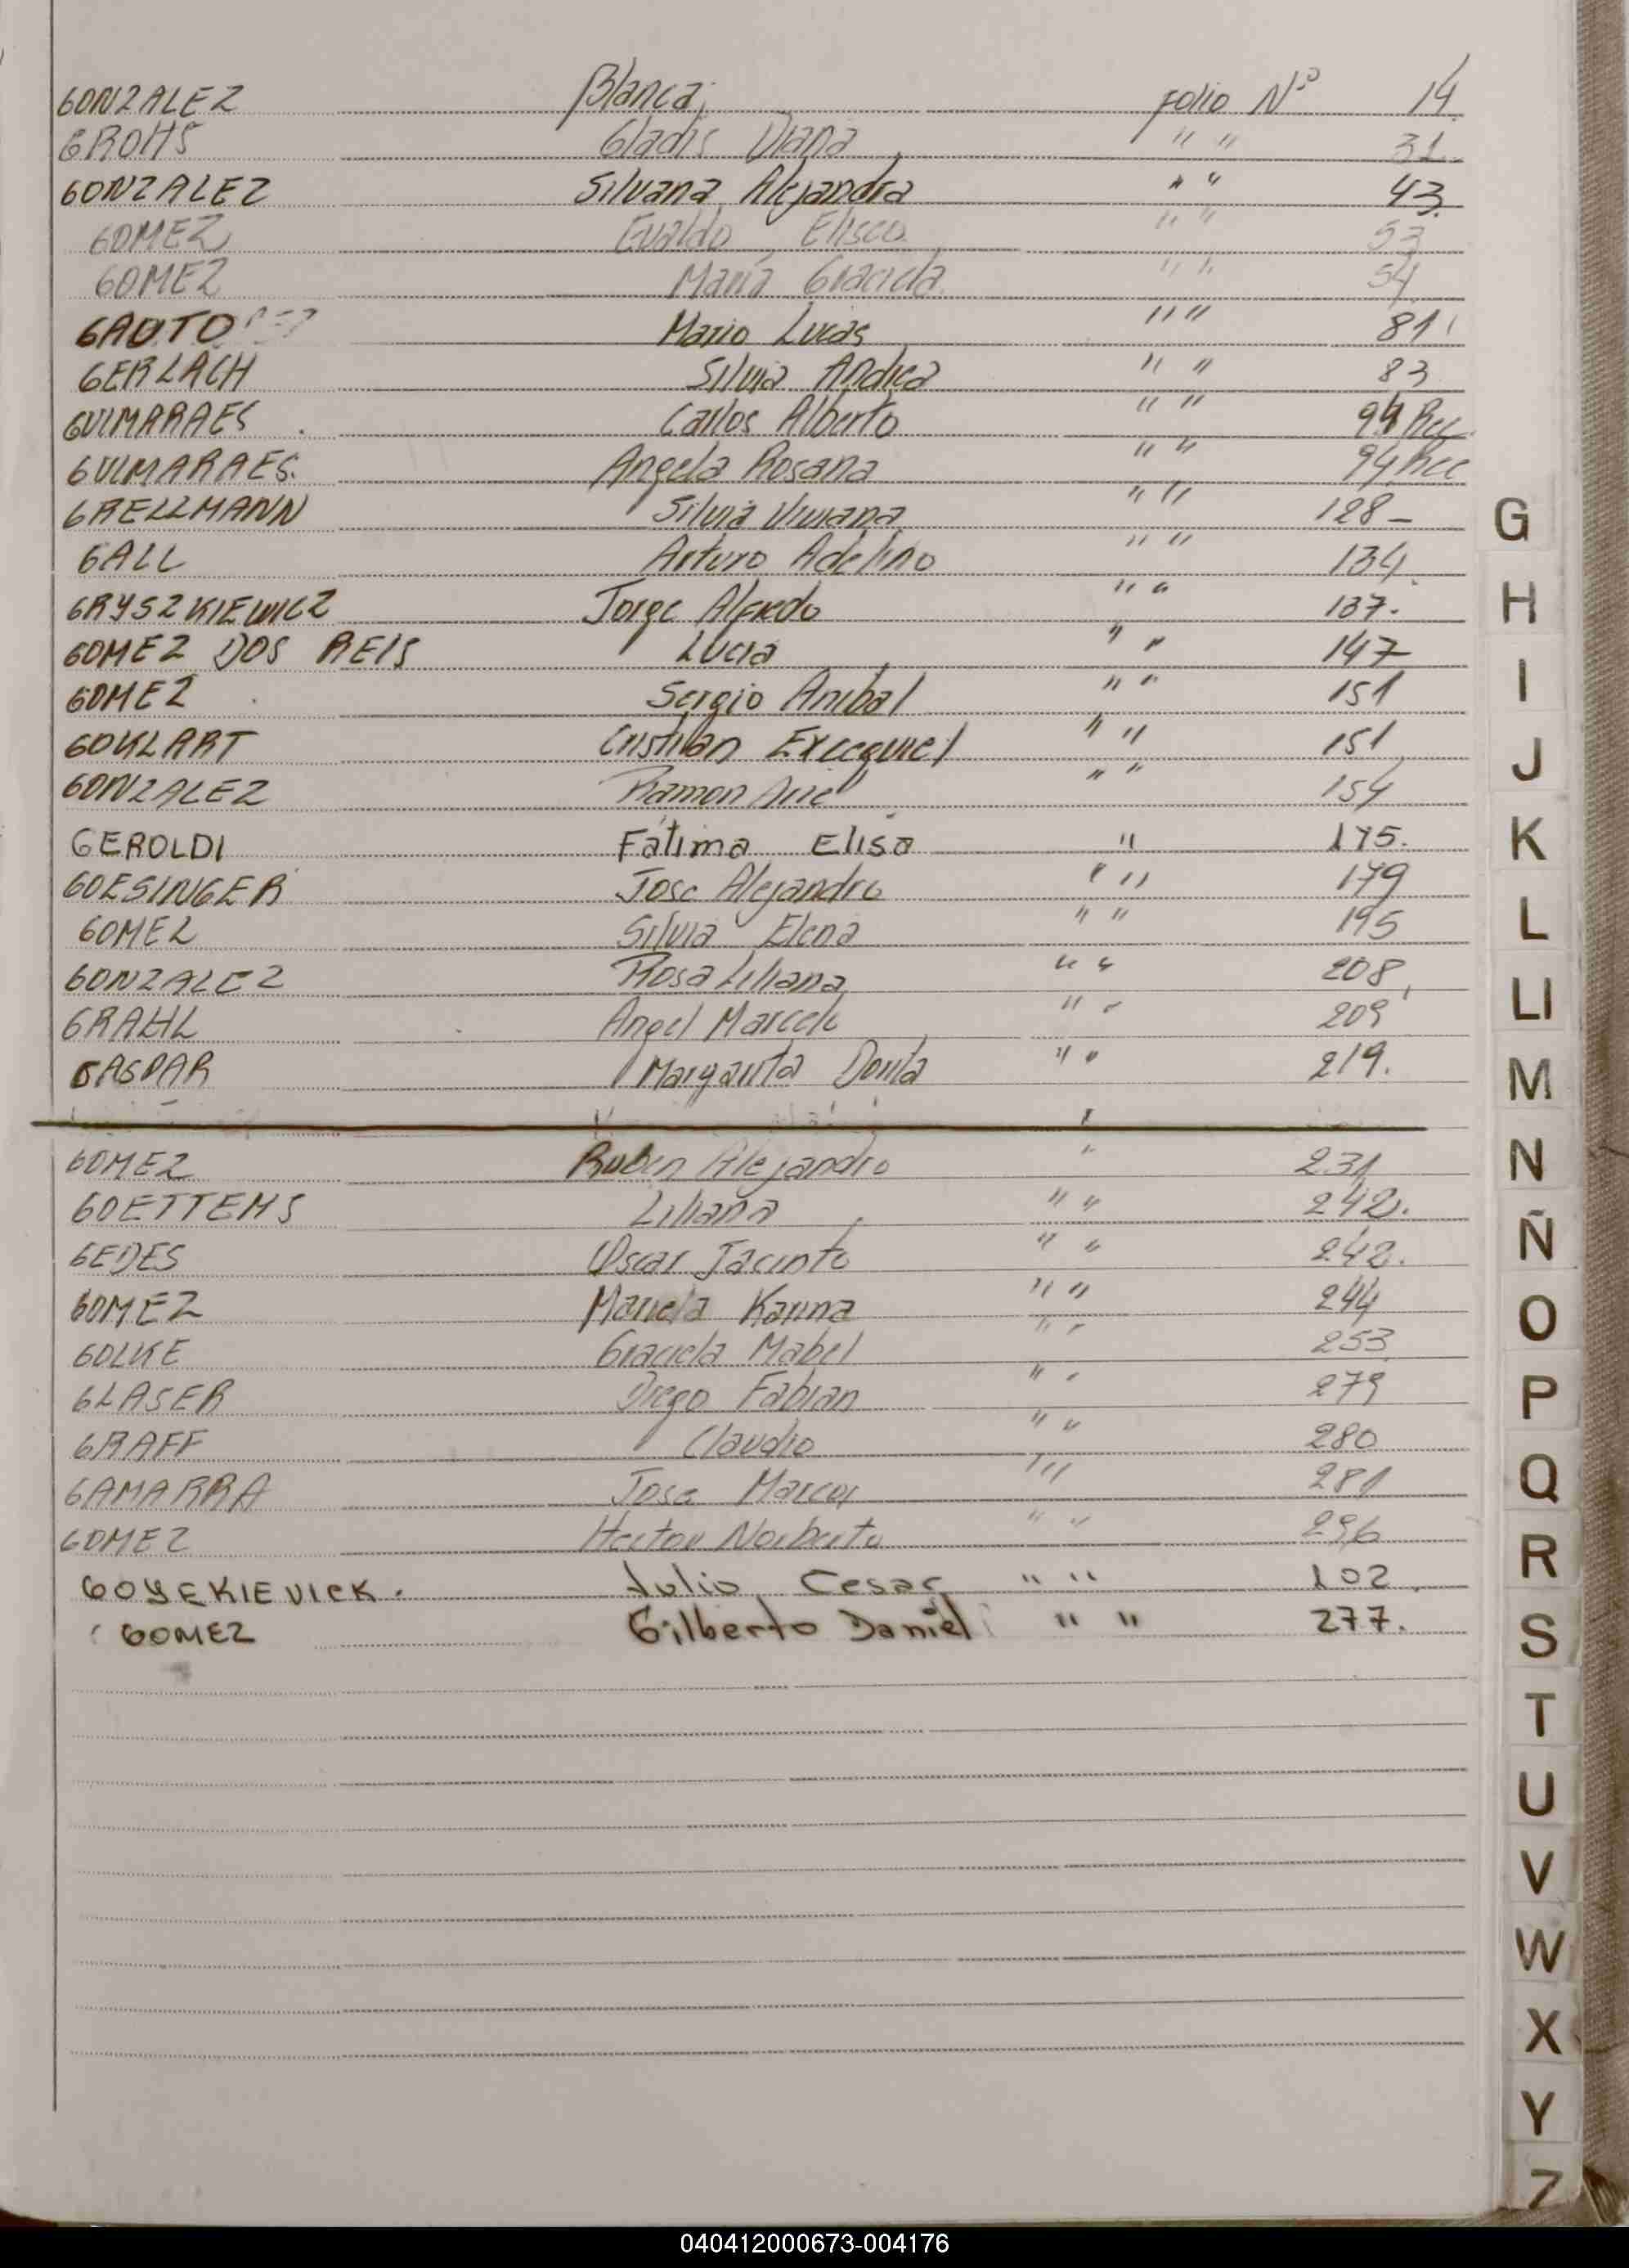 GONZALEZ Blanca, Folio Nº 14
GROHS Gladis Diana " " 31.
GONZALEZ Silvana Alejandra " " 43.
GOMEZ Evaldo Eliseo " " 53
GOMEZ María Graciela " " 54
GAUTO Mario Lucas " " 81
GERLACH Silvia Andrea " " 83
GUIMARAES Carlos Alberto " " 94 Rec.
GUIMARAES. Angela Rosana " " 94 Rec
GRELLMANN Silvia Viviana " " 128-
GALL Arturo Adelino " " 134.
GRYSZKIEWICZ Jorge Alfredo " " 137.
GOMEZ DOS REIS Lucia " " 147
GOMEZ Sergio Anibal " " 151
GOULART Cristian Execquiel " " 151
GONZALEZ Ramon " " 154
GEROLDI Fátima Elisa " 175.
GOESINGER Jose Alejandro " " 179
GOMEZ Silvia Elena " " 195
GONZALEZ Rosa Liliana " " 208
GRAHL Angel Marcelo " " 209
GASPAR Margarita " " 219.
GOMEZ Ruben Alejandro " 231
GOETTEMS Liliana " " 242.
GEDES Oscar Jacinto " " 242.
GOMEZ Mariela Karina " " 244
GOLKE Graciela Mabel " " 253
GLASER Diego Fabian " " 279
GRAFF Claudio " " 280
GAMARRA Jose Marcos " " 281
GOMEZ Hector Norberto " " 296
Julio Cesar " " 102.
GOMEZ Gilberto Daniel " " 277.
G
H
I
J
K
L
Ll
M
N
Ñ
O
P
Q
R
S
T
U
V
W
X
Y
Z
040412000673-004176